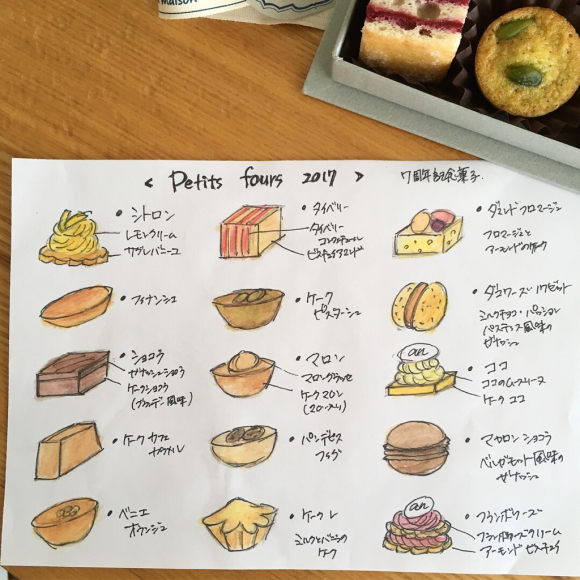 maison
< Petits fours 2017 >
7周年記念菓子
・シトロン
レモンクリーム
サブレバニーユ
・タイベリー
タイベリー
コンフィチュール
ビスキュイアマンド
フロマージュと
アーモンドのケーク
・フィナンシェ
・ケーク
ピスターシュ
ミルクチョコ・パッション
風味の
ガナッシュ
・ショコラ
ガナッシュショコラ
ケークショコラ
(ブランデー風味)
・マロン
マロングラッセ
ケークマロン
・ココ
ココのムースリーヌ
ケークココ
・ケークカフェ
・パンデピス
フィグ
・マカロンショコラ
ベルガモット風味の
ガナッシュ
・ベニエ
オランジュ
・ケークレ
ミルクとバニラの
ケーク
・フランボワーズ
フランボワーズクリーム
アーモンド
an
an